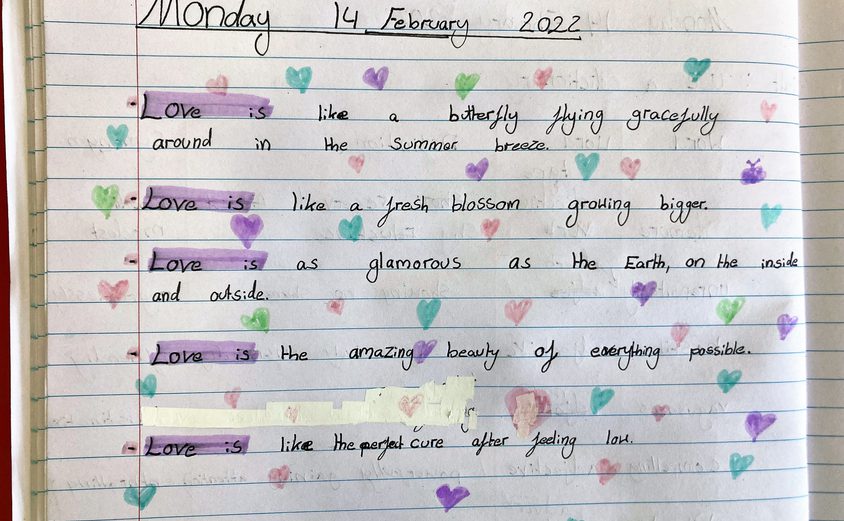 Monday 14 February 2022
- Love is like a butterfly flying gracefully
around in the summer breeze.
- Love is like a fresh blossom growing bigger.
- Love is as glamorous as the Earth, on the inside
and outside.
- Love is the amazing beauty of everything possible.
- Love is like the perfect cure after feeling low.